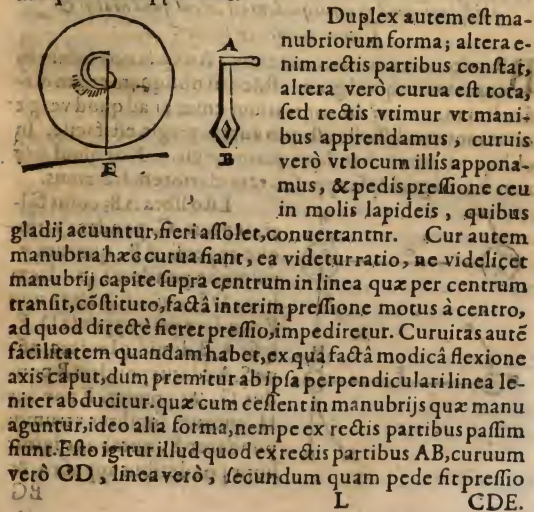 A
B
E
Duplex autem eſt ma-
nubriorum forma; altera e-
nim rectis partibus conſtat,
altera verò curua eſt tota,
ſed rectis vtimur vt mani-
bus apprendamus, curuis
verò vt locum illis appona-
mus, & pedis preſſione ceu
in molis lapideis, quibus
gladij acuuntur, fieri aſſolet, conuertantnr. Cur autem
manubria hæc curua fiant, ea videtur ratio, ne videlicet
manubrij capite ſupra centrum in linea quæ per centrum
tranſit, cõſtituto, factâ interim preſſione motus à centro,
ad quod directè fieret preſſio, impediretur. Curuitas autẽ
facilitatem quandam habet, ex quà factâ modicâ flexione
axis caput, dum premitur ab ipſa perpendiculari linea le-
niter abducitur. quæ cum ceſſent in manubrijs quæ manu
aguntur, ideo alia forma, nempe ex rectis partibus paſſim
fiunt. Eſto igitur illud quod ex rectis partibus AB, curuum
verò CD, linea verò, ſecundum quam pede fit preſſio
L CDE.